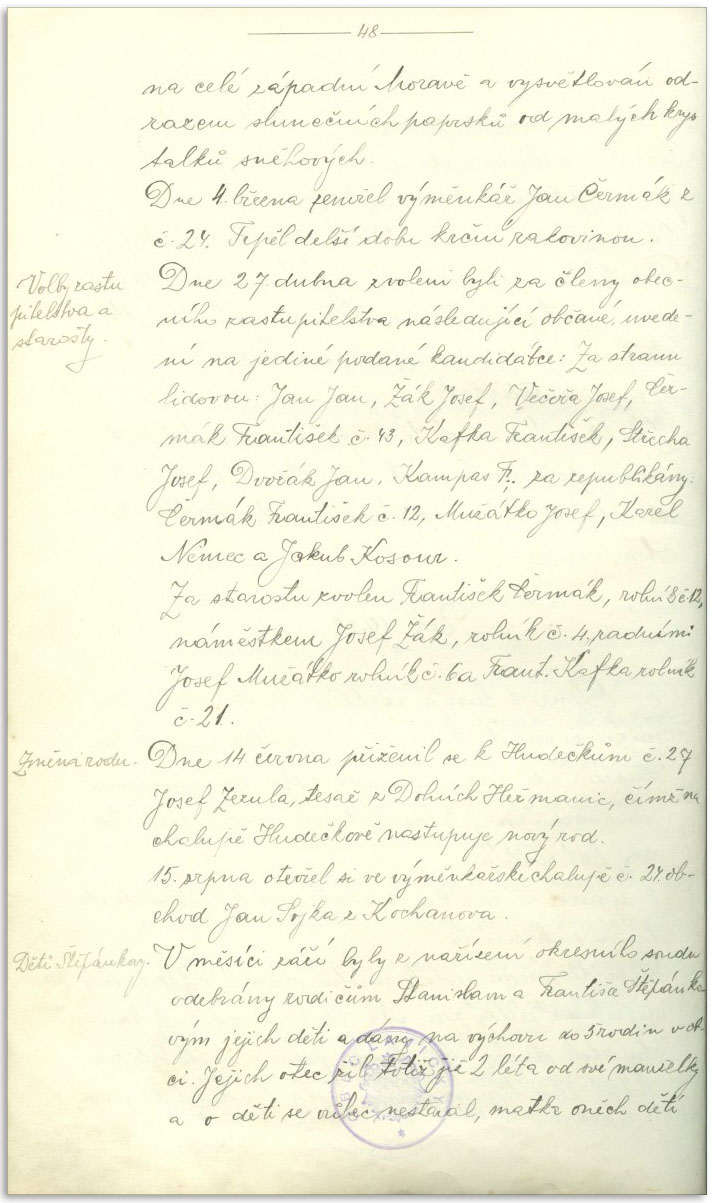 48
na celé západní Moravě a vysvětlován od-
razem slunečních paprsků od malých krys
talků sněhových.
Dne 4. března zemřel výměnkář Jan Čermák z
č. 24. Trpěl delší dobu krční rakovinou.
Volby zastu
pitelstva a
starosty.
Dne 27 dubna zvoleni byli za členy obec-
ního zastupitelstva následující občané, uvede-
ní na jediné podané kandidátce: Za stranu
lidovou: Jan Jan, Žák Josef, Večeřa Josef, Čer-
mák František č. 43, Kafka František, Střecha
Josef, Dvořák Jan, Kampas Fr. za republikány:
Čermák František č. 12, Mužátko Josef, Karel
Němec a Jakub Kosour.
Za starostu zvolen František Čermák, rolník č 12,
náměstkem Josef Žák, rolník č. 4. radními
Josef Mužátko rolník č. 6 a Frant. Kafka rolník
č. 21.
Změna rodu.
Dne 14 června přiženil se k Hudečkům č. 27
Josef Zezula, tesař z Dolních Heřmanic, čímž na
chalupě Hudečkově nastupuje nový rod.
15. srpna otevřel si ve výměnkářské chalupě č. 24. ob-
chod Jan Sojka z Kochanova.
Děti Štěpánkovy.
V měsíci září byly z nařízení okresního soudu
odebrány rodičům Stanislavu a Františce Štěpánko
vým jejich děti a dány na výchovu do 5 rodin v ob-
ci. Jejich otec žil totiž již 2 léta od své manželky
a o děti se vůbec nestaral, matka oněch dětí